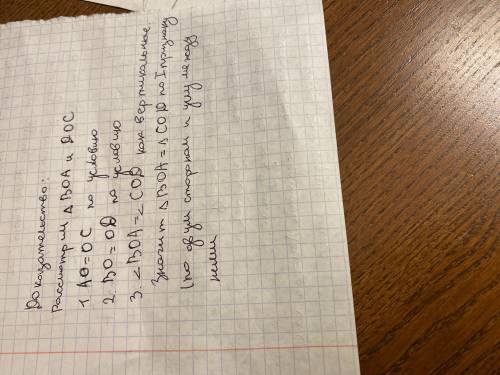 Доказательство:
Рассмотрим △ BOA и DOC
1. AO = OC по условию
2. BO = OD по условию
3. ∠BOA = ∠COD как вертикальные
Значит △ BOA = △ COD по I признаку
(по двум сторонам и углу между
ними